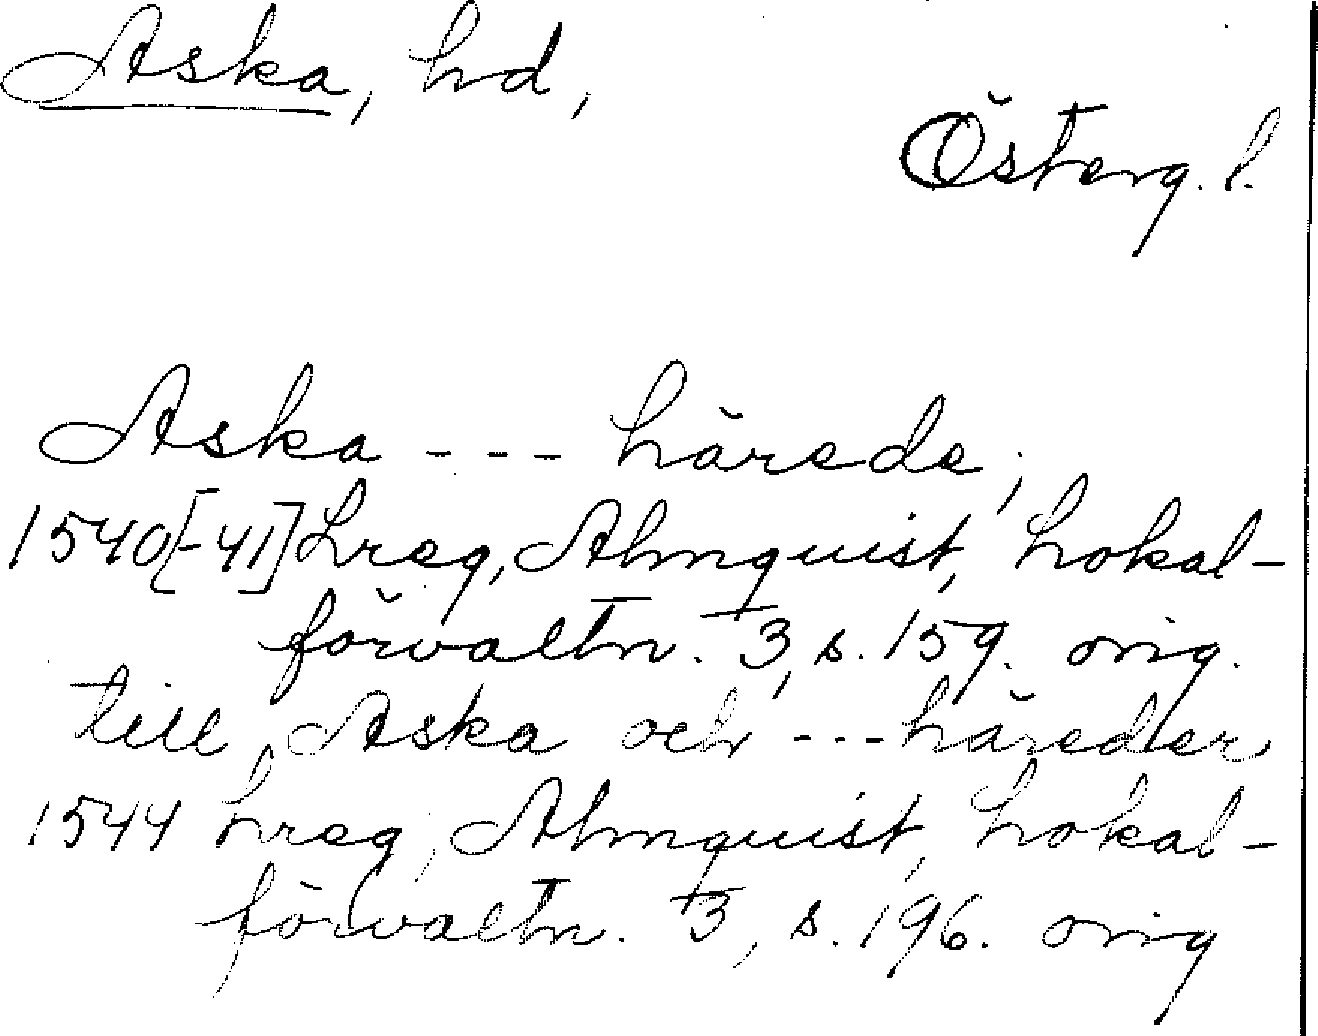 Aska, hd,
Österg. l.
Aska --- härede,
1540[-41] Lreg, Almquist, Lokal-
förvaltn. 3, s. 159. orig.
till Aska och --- häreder
1544 Lreg, Almquist, Lokal-
förvaltn. 3, s. 196. orig